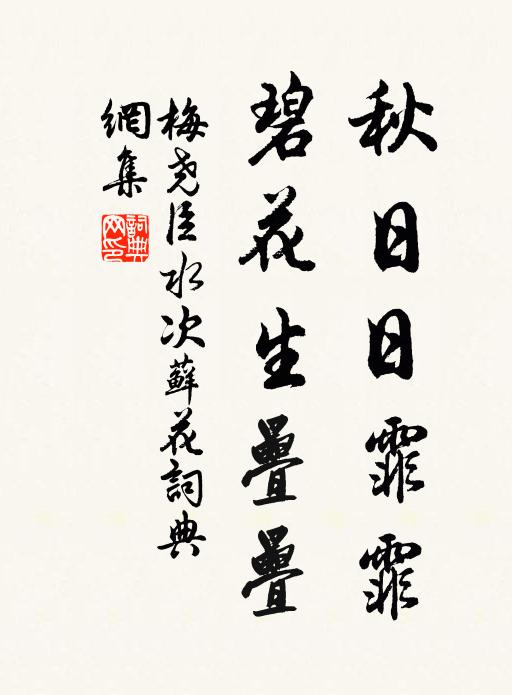 秋日日霏霏
碧花生疊疊
梅堯臣水次蘚花詞典
網集
詞典網印